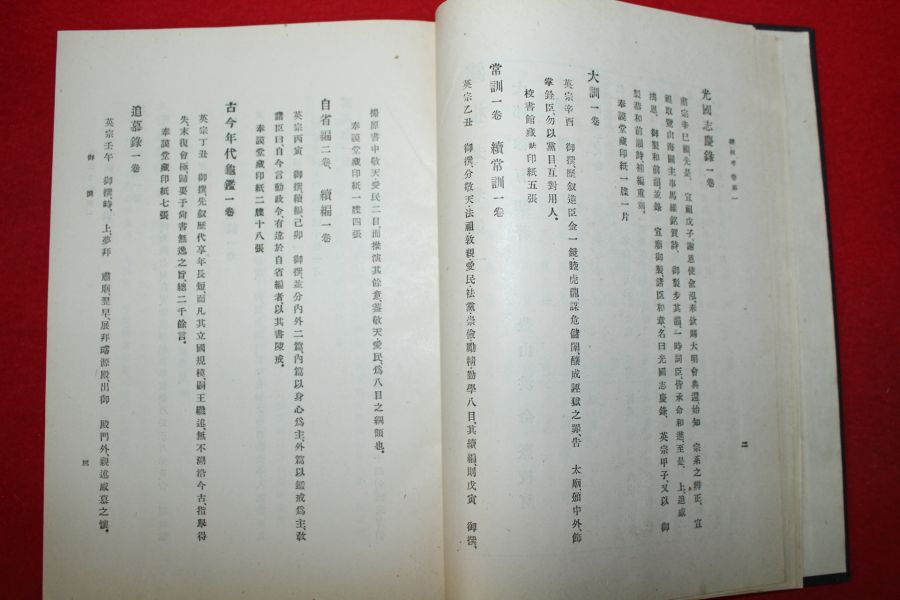 鏤板考 卷第一
光國志慶錄一卷
肅宗辛巳編、先是、宣祖戊子謝恩使兪泓、奉欽賜大明會典還、始知 宗系之辨正、宣
祖取覽山海關主事馬維銘賀詩、御製步其韻、一時詞臣、皆承命和進、至是、上追感
鴻恩、御製和前韻、並錄 宣廟御製、諸臣和章、名曰光國志慶錄、英宗甲子、又以 御
製恭和前韻詩補編重刊、
奉謨堂藏印紙一牒一片
大訓一卷
英宗辛酉 御撰、歷叙逆臣金一鏡睦虎龍謀危儲闈、釀成誣獄之罪、告 太廟、頒中外、飾
掌銓臣、勿以黨目、互對用人、
校書館藏缺印紙五張
常訓一卷 續常訓一卷
英宗乙丑 御撰、分敬天、法祖、敦親、愛民、祛黨、崇儉、勵精、勤學八目、其續編則戊寅 御撰、
二
撮原書中敬天、愛民二目、而推演其餘意、蓋敬天愛民、爲八目之綱領也、
奉謨堂藏印紙一牒四張
自省編二卷、續編一卷
英宗丙寅 御撰、續編己卯 御撰、並分內外二篇、內篇以身心爲主、外篇以鑑戒爲主、敎
諸臣曰、自今言動政令、有違於自省編者、以其書陳戒、
奉謨堂藏印紙二牒十八張
古今年代龜鑑一卷
英宗丁丑 御撰、先叙歷代享年長短、而凡其立國規模、嗣王繼述、無不溯沿今古、指擧得
失、末復會極、歸要于尙書無逸之旨、總二千餘言、
奉謨堂藏印紙七張
追慕錄一卷
英宗壬午 御撰、時、上、夢拜 肅廟、翌早、展拜璿源殿、出御 殿門外、親述感慕之懷、
御 撰
三